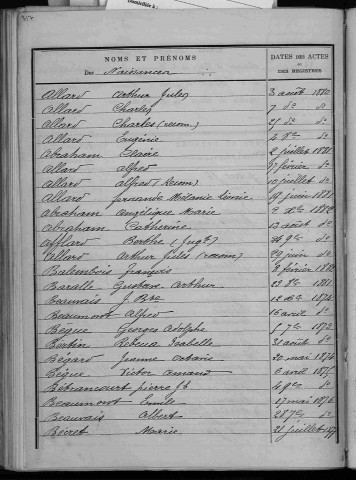 NOMS ET PRÉNOMS
DATES DES ACTES
OU DES REGISTRES
Des Naissances
Allard Arthur Jules 3 août 1880
Allard Charles 7 do do
Allard Charles (reconn.) 25 do do
Allard Eugénie 4 do
Abraham Claire 2 juillet 1881
Allard Alfred février do
Allard Alfred (reconn) 10 juillet do
Allard Fernande Mélanie 19 juin 1881
Abraham Angélique Marie 2 1882
Abraham Catherine 13 août do
Afflard Berthe (Jugt) do
Allard Arthur Jules (reconn) 29 juin do
Balembois François 8 février
Baralle Gustave Arthur 23 1881
Beauvais J. Bte 12 1874
Beaumont Alfred 16 avril do
Bègue Georges Adolphe 5 7bre 1873
Bertin Rebecca Isabelle 31 août do
Bégard Jeanne Octavie 20 mai 1874
Bègue Victor Armand 6 avril 1875
Bétrancourt Pierre Jh 4 9bre do
Beaumont Emile 17 mai 1876
Beauvais Albert 28 7bre do
Bécret Marie 21 juillet 1877